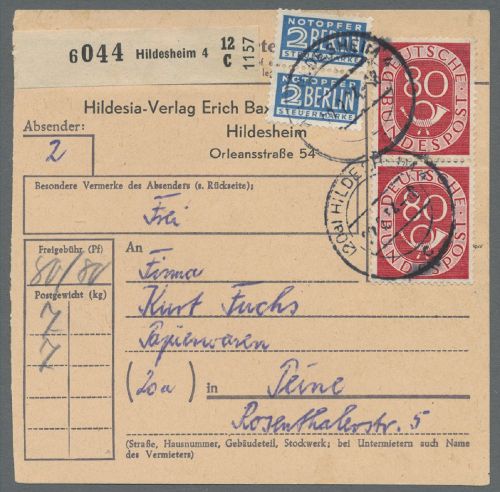 6044 Hildesheim 4 12 C 1157
NOTOPFER
2 BERLIN
STEUERMARKE
NOTOPFER
2 BERLIN
STEUERMARKE
DEUTSCHE BUNDESPOST
80
DEUTSCHE BUNDESPOST
80
Hildesia-Verlag Erich Bax
Hildesheim
Orleansstraße 54
Absender:
2
(20a) HILDESH
Besondere Vermerke des Absenders (s. Rückseite):
Frei
Freigebühr (Pf)
80/80
Postgewicht (kg)
7
7
An
Firma
Kurt Fuchs
Papierwaren
(20a) in Peine
Rosenthalerstr. 5
(Straße, Hausnummer, Gebäudeteil, Stockwerk; bei Untermietern auch Name
des Vermieters)